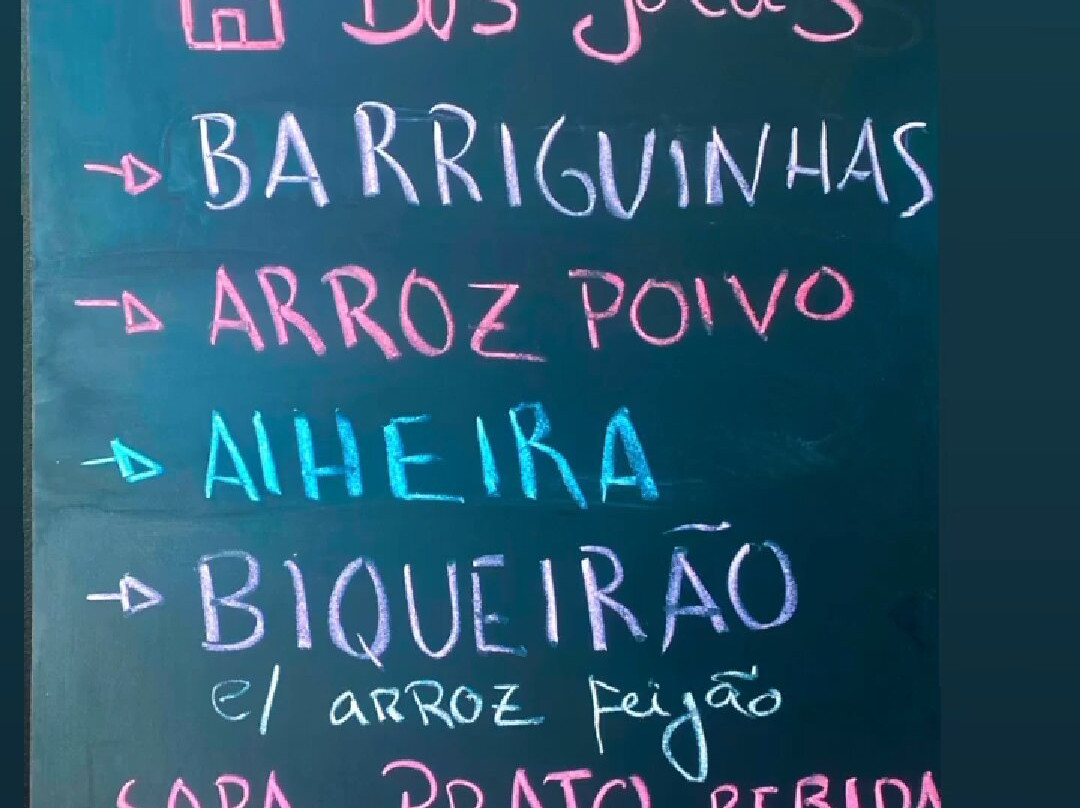 Dos
→ BARRIGUINHAS
→ ARROZ POlVO
→ AlHEIRA
→ BIQUEIRÃO
c/ ARROZ feijão
SOPA PRATO BEBIDA